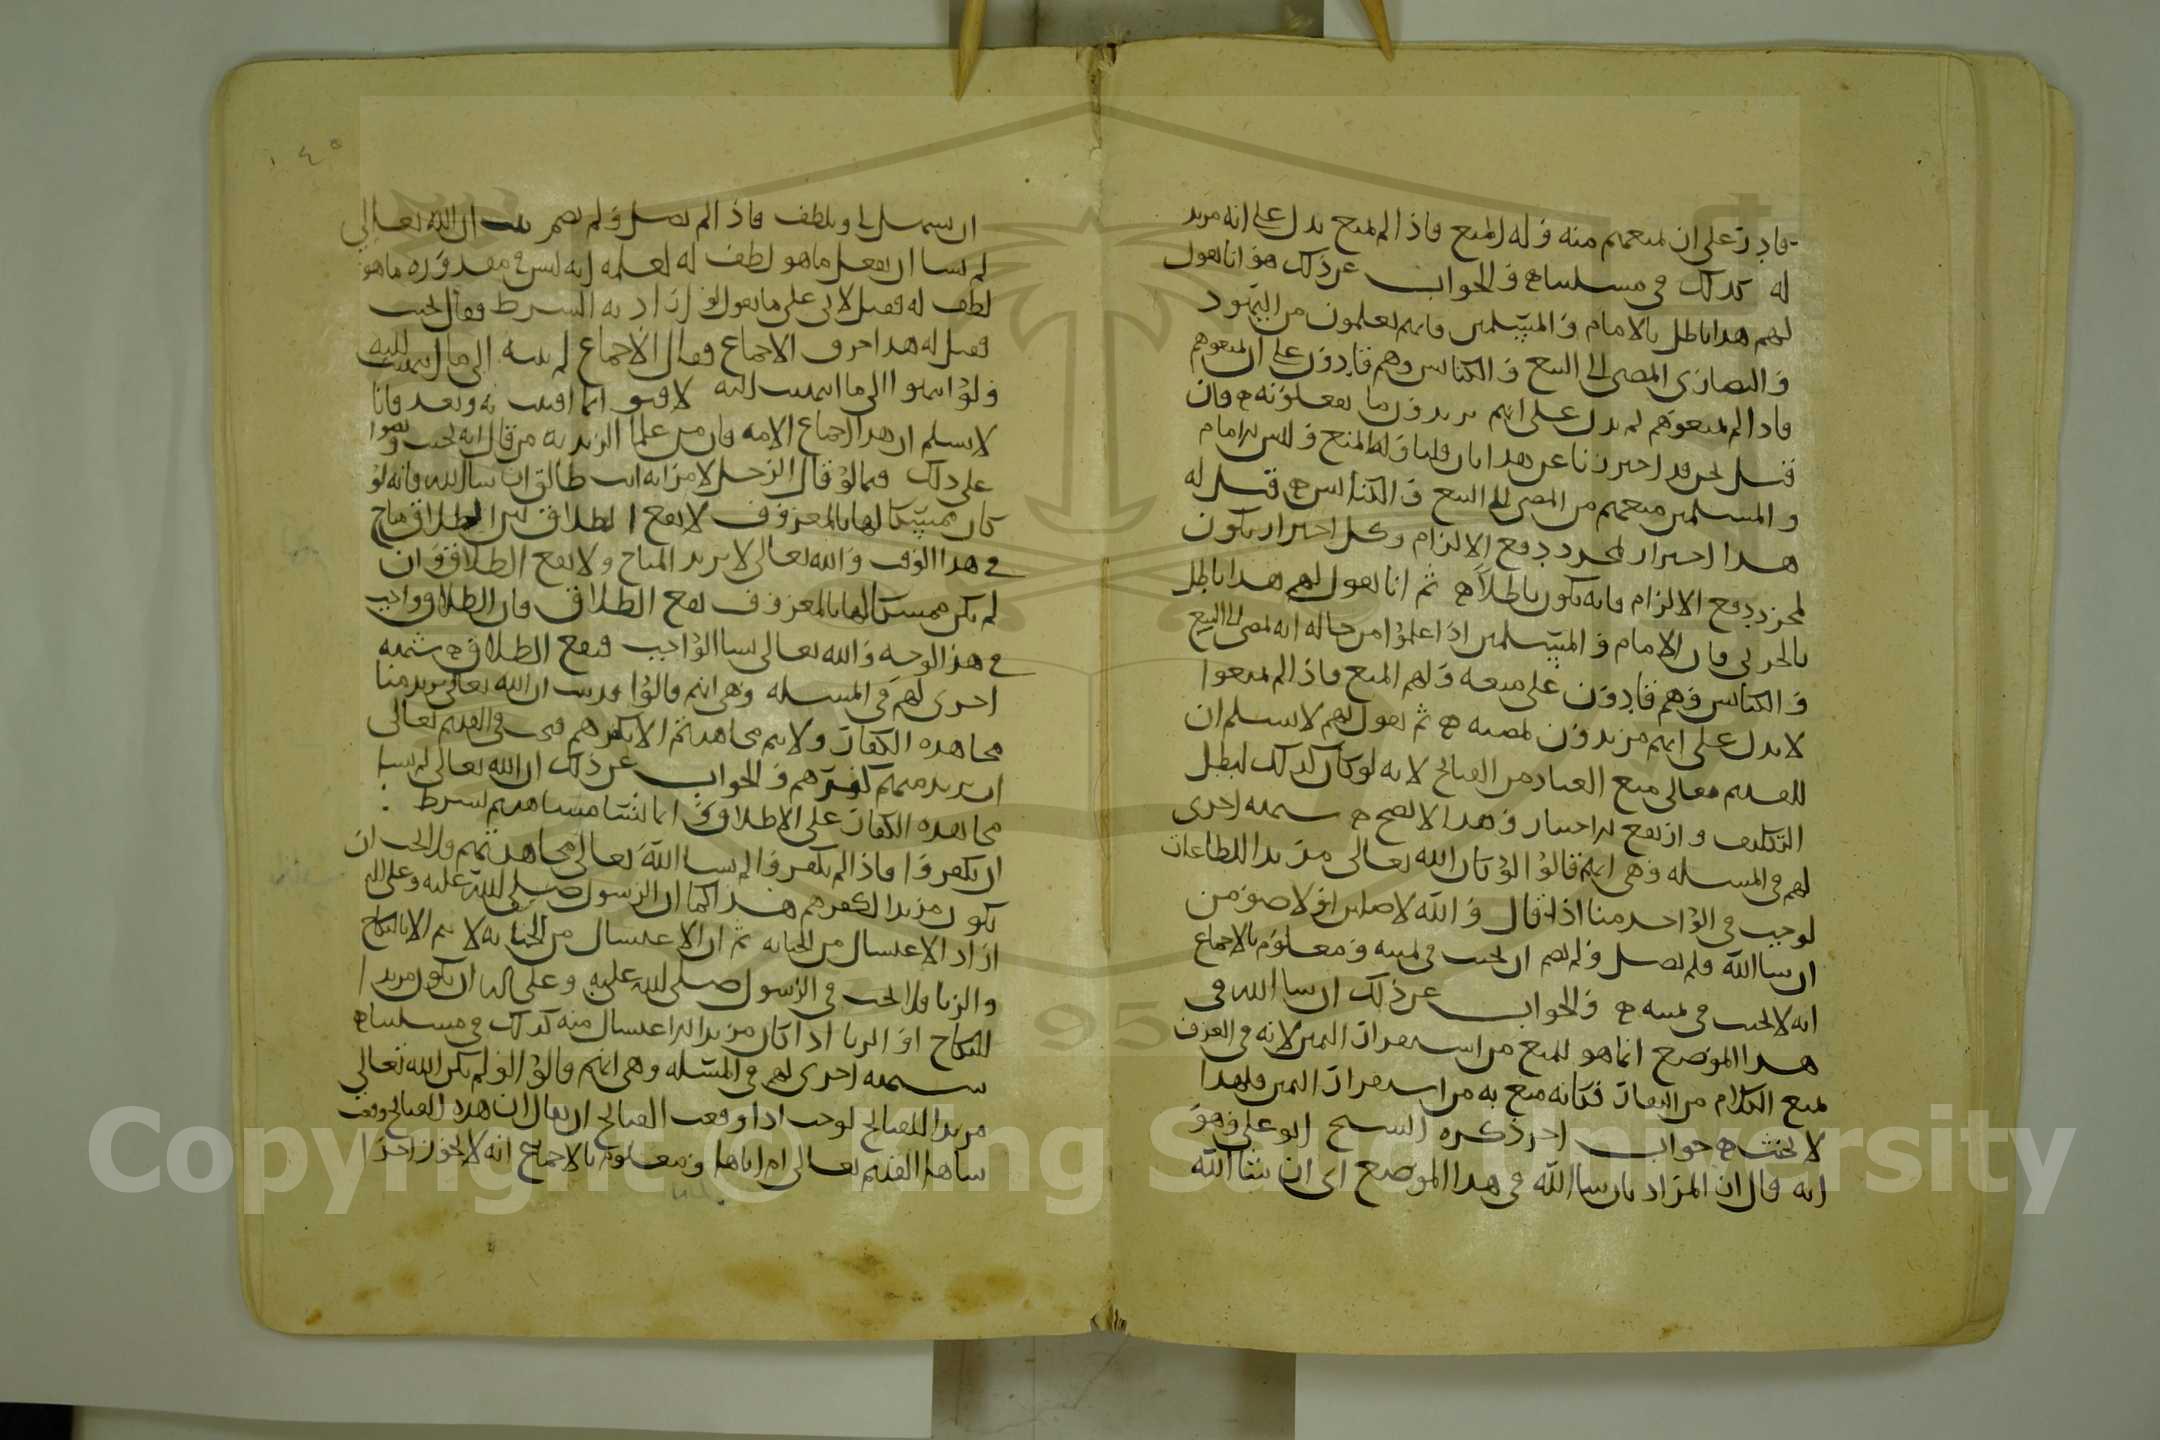 قادر على ان يمنعهم منه وله المنع فاذا لم يمنع يدل على انه مريد
له كذلك في مسلتنا ه والجواب عن ذلك هو انا نقول
لهم هذا باطل بالامام والمسلمين فانهم يعلمون من اليهود
والنصارى المضى الى البيع والكنائس وهم قادرون على ان يمنعوهم
فاذا لم يمنعوهم لم يدل على انهم يريدون ما يفعلونه ه فان
قيل نحن قد احترزنا عن هذا بان قلنا وله المنع وليس للامام
والمسلمين منعهم من المضى الى البيع والكنائس ه قيل له
هذا احتراز لمجرد دفع الالزام وكل احتراز يكون
لمجرد دفع الالزام فانه يكون باطلا ه ثم انا نقول لهم هذا باطل
بالحربى فان الامام والمسلمين اذا علموا من حاله انه يمضى الى البيع
والكنائس وهم قادرون على منعه ولهم المنع فاذا لم يمنعوا
لا يدل على انهم مريدون لمضيه ه ثم نقول لهم لا نسلم ان
للقديم تعالى منع العباد من القبائح لانه لو كان كذلك لبطل
التكليف وارتفع الاختيار وهذا لا يصح ه شبهه اخرى
لهم في المسله وهى انهم قالوا لو كان الله تعالى مريدا للطاعات
لوجب في الواحد منا اذا قال والله لاصلين او لاصومن
ان شا الله فلم يصل ولم يصم ان يحنث في يمينه ومعلوم بالاجماع
انه لا يحنث في يمينه ه والجواب عن ذلك ان شا الله في
هذا الموضع انما هو للمنع من استقرار اليمين لانه في العرف
لمنع الكلام من النفاذ فكانه منع به من استقرار اليمين فلهذا
لا يحنث ه جواب اخر ذكره الشيخ ابو على وهو
انه قال ان المراد بان شا الله في هذا الموضع اى ان شا الله
١٤٥
ان يسهل لى ويلطف فاذا لم يصل ولم يصم ان الله تعالى
لم يشا ان يفعل ما هو لطف له لعلمه انه ليس في مقدوره ما هو
لطف له فقيل لابى على ما تقول لو اراد به الشرط فقال يحنث
فقيل له هذا خرق الاجماع فقال الاجماع لم ينته الى ما انتهيت اليه
ولو انتهوا الى ما انتهيت اليه لافتوا بما افتيت به وبعد فانا
لا نسلم ان هذا اجماع الامه فان من علما الزيديه من قال انه يحنث
على ذلك فيما لو قال الرجل لامرأته انت طالق ان شا الله فانه لو
كان ممسكا لها بالمعروف لا يقع الطلاق لان الطلاق مباح
في هذا الوقت والله تعالى لا يريد المباح ولا يقع الطلاق وان
لم يكن ممسكا لها بالمعروف يقع الطلاق فان الطلاق واجب
في هذا الوجه والله تعالى يشا الواجب فيقع الطلاق ه شبهه
اخرى لهم في المسله وهى انهم قالوا قد ثبت ان الله تعالى يريد منا
مجاهده الكفار ولا يتم مجاهدتهم الا بكفرهم فيجب في القديم تعالى
ان يريد منهم كفرهم والجواب عن ذلك ان الله تعالى لم يشا
مجاهده الكفار على الاطلاق وانما يشا مجاهدتهم بشرط
ان يكفروا فاذا لم يكفروا لم يشا الله تعالى مجاهدتهم فلا يجب ان
يكون مريدا لكفرهم هذا كما ان الرسول صلى الله عليه وعلى اله
اراد الاغتسال من الجنابه ثم ان الاغتسال من الجنابه لا يتم الا بالنكاح
والزنا فلا يجب في الرسول صلى الله عليه وعلى اله ان يكون مريدا
للنكاح او الزنا اذا كان مريدا للاغتسال منه كذلك في مسلتنا ه
شبهه اخرى لهم في المسله وهى انهم قالوا لو لم يكن الله تعالى
مريدا للقبائح لوجب اذا وقعت القبائح ان يقال ان هذه القبائح وقعت
شاها القديم تعالى ام اباها ومعلوم بالاجماع انه لا يجوز اخذا
Copyright © King Saud University
1957